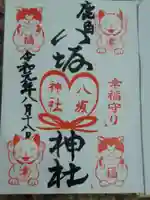 鹿角
八坂神社
幸福守り
八坂
神社
令和元年八月十八日
福
福